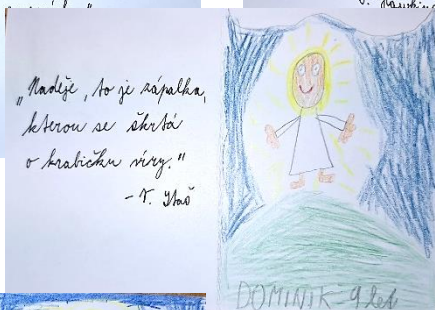 „Naděje, to je zápalka,
kterou se škrtá
o krabičku víry."
DOMINIK - 9 let